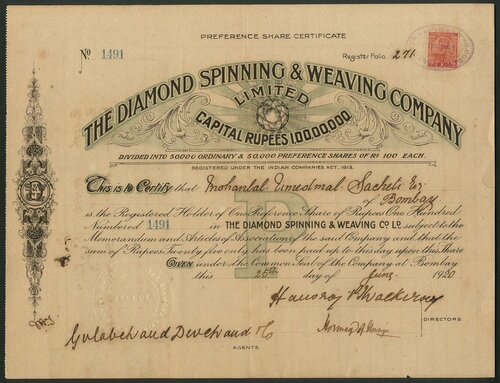 PREFERENCE SHARE CERTIFICATE
No 1491
Register Folio 271
THE DIAMOND SPINNING & WEAVING COMPANY
LIMITED
CAPITAL RUPEES 1,00,00,000
DIVIDED INTO 50,000 ORDINARY & 50,000 PREFERENCE SHARES OF Rs 100 EACH.
REGISTERED UNDER THE INDIAN COMPANIES ACT, 1913.
This is to Certify that Mohanlal Umedmal Sacheti Esq
of Bombay
is the Registered Holder of One Preference Share of Rupees One Hundred
Numbered 1491 in THE DIAMOND SPINNING & WEAVING Co LD. subject to the
Memorandum and Articles of Association of the said Company and that the
sum of Rupees Twenty five only has been paid up to this day upon this Share
GIVEN under the Common Seal of the Company at Bombay
this 25th day of June 1920
DIRECTORS.
Gulabchand Devchand & Co
AGENTS.